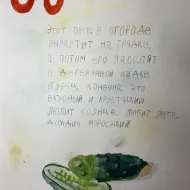 ЭТОТ ОВОЩ В ОГОРОДЕ
ВЫРАСТАЕТ НА ГРЯДКЕ,
А ПОТОМ ЕГО ЗАСОЛЯТ
В ДЕРЕВЯННОЙ КАДКЕ.
ОГУРЕЦ, КОНЕЧНО ЭТО
ВКУСНЫЙ И ХРУСТЯЩИЙ
ЛЮБИТ СОЛНЦЕ, ЛЮБИТ ЛЕТО,
ДОЖДИК МОРОСЯЩИЙ